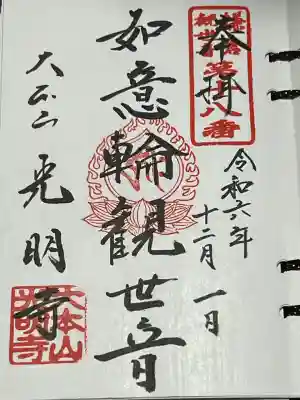 奉拝
第十八番
令和六年
十二月一日
如意輪観世音
大本山光明寺
大本山
光明寺